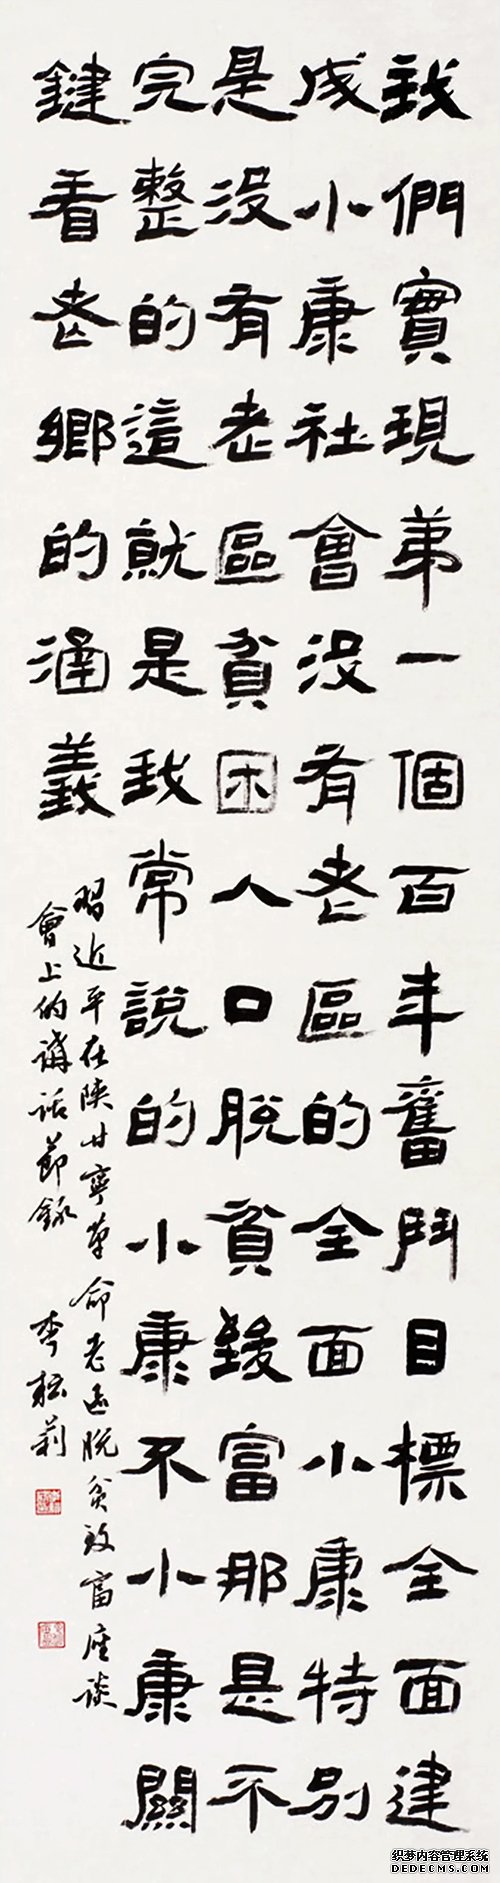 我們實現弟一個百年奮鬥目標全面建
成小康社會没有老區的全面小康特别
是没有老區貧困人口脱貧致富那是不
完整的這就是我常説的小康不小康關
鍵看老鄉的涵義
習近平在陝甘寧革命老區脱貧致富座談
會上的講話節録 李
织梦内容管理系统
DEDECMS.COM